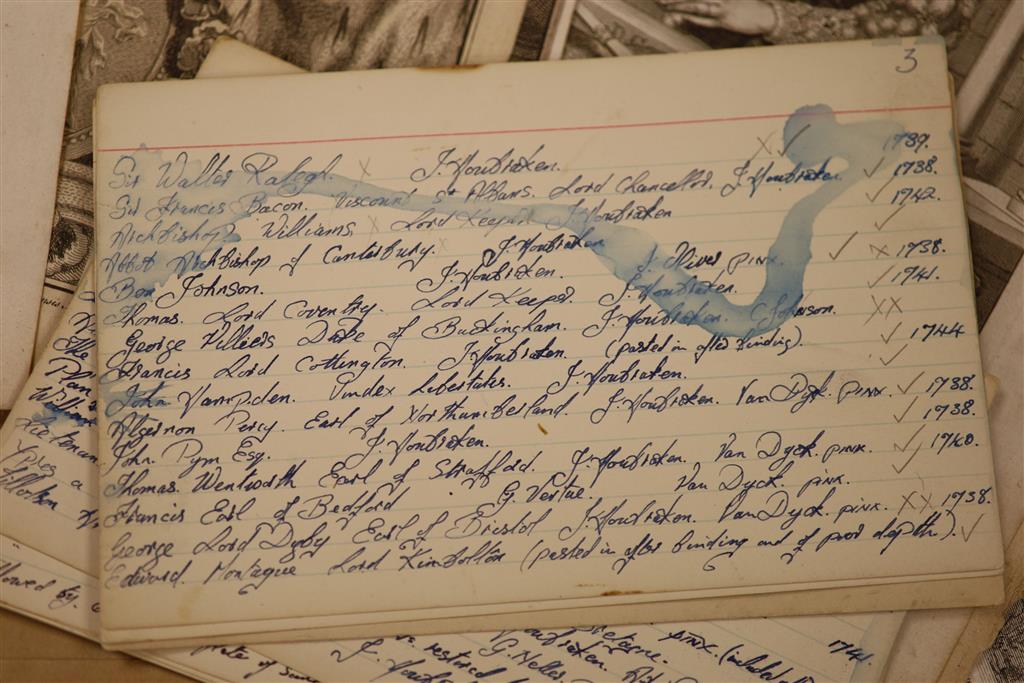 3
Sir Walter Ralegh. x J. Houbraken. x ✓ 1739.
Sir Francis Bacon. Viscount St Albans. Lord Chancellor. J. Houbraken ✓ 1738.
Archbishop Williams x Lord Keeper J. Houbraken ✓ 1742.
Abbot Archbishop of Canterbury. J. Houbraken
Ben Johnson. J. Houbraken. J. Oliver pinx. ✓ x 1738.
Thomas. Lord Coventry. Lord Keeper. J. Houbraken. ✓ 1741.
George Villiers Duke of Buckingham. J. Houbraken. C Johnson. xx
Francis Lord Cottington. J. Houbraken. (pasted in after binding). ✓ 1744
John Hampden. Vindex Libertatis. J. Houbraken. ✓
Algernon Percy. Earl of Northumberland. J. Houbraken. Van Dyck. pinx. ✓ 1738.
John. Pym Esq. J. Houbraken. ✓ 1738.
Thomas. Wentworth Earl of Strafford. J. Houbraken. Van Dyck. pinx. ✓ 1740.
Francis Earl of Bedford G. Vertue. Van Dyck. pinx.
George Lord Dygby Earl of Bristol J. Houbraken. Van Dyck. pinx. xx 1738.
Edward. Montague Lord Kimbolton (pasted in after binding and of poor depth). ✓
The
Plan
lowed by.
restored
G. Neller
pinx. (included
1741.